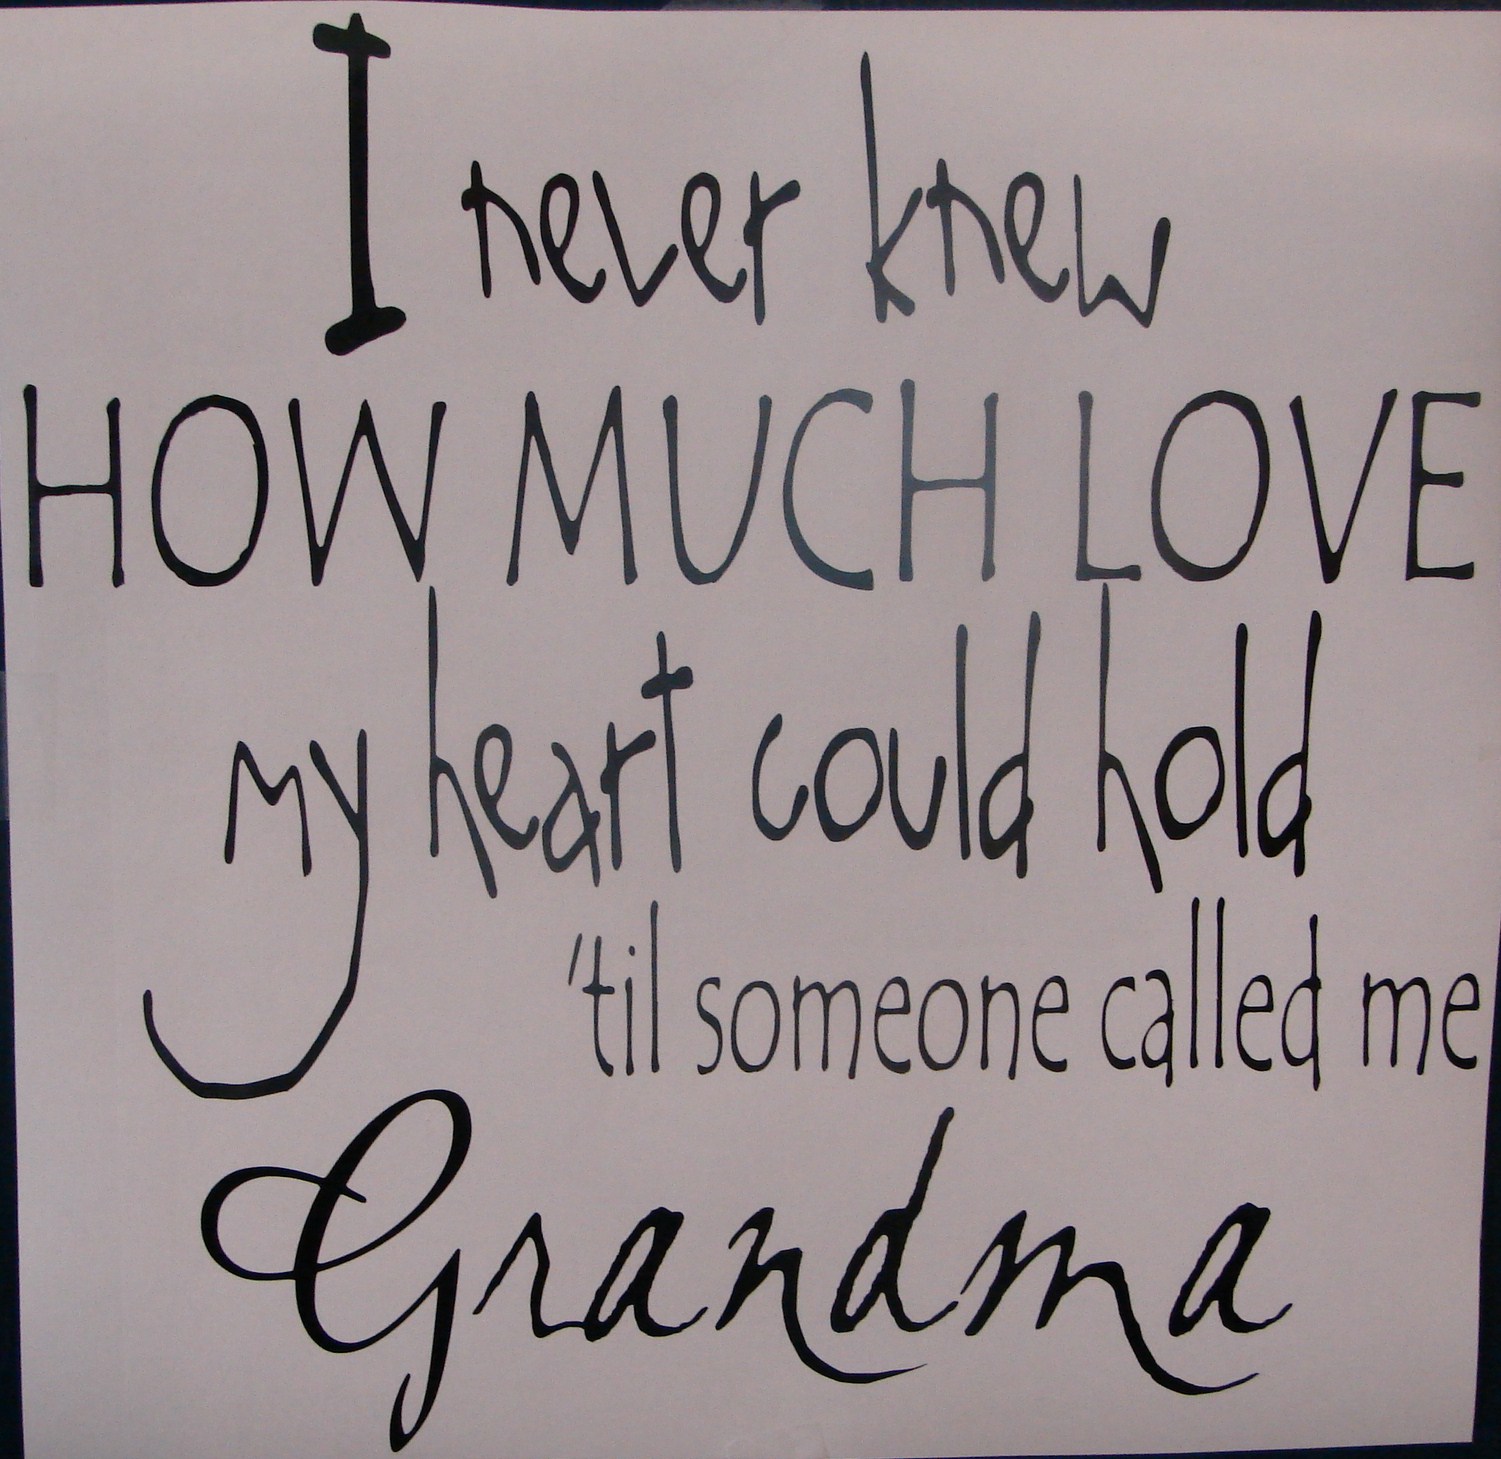 I never knew
HOW MUCH LOVE
my heart could hold
'til someone called me
Grandma